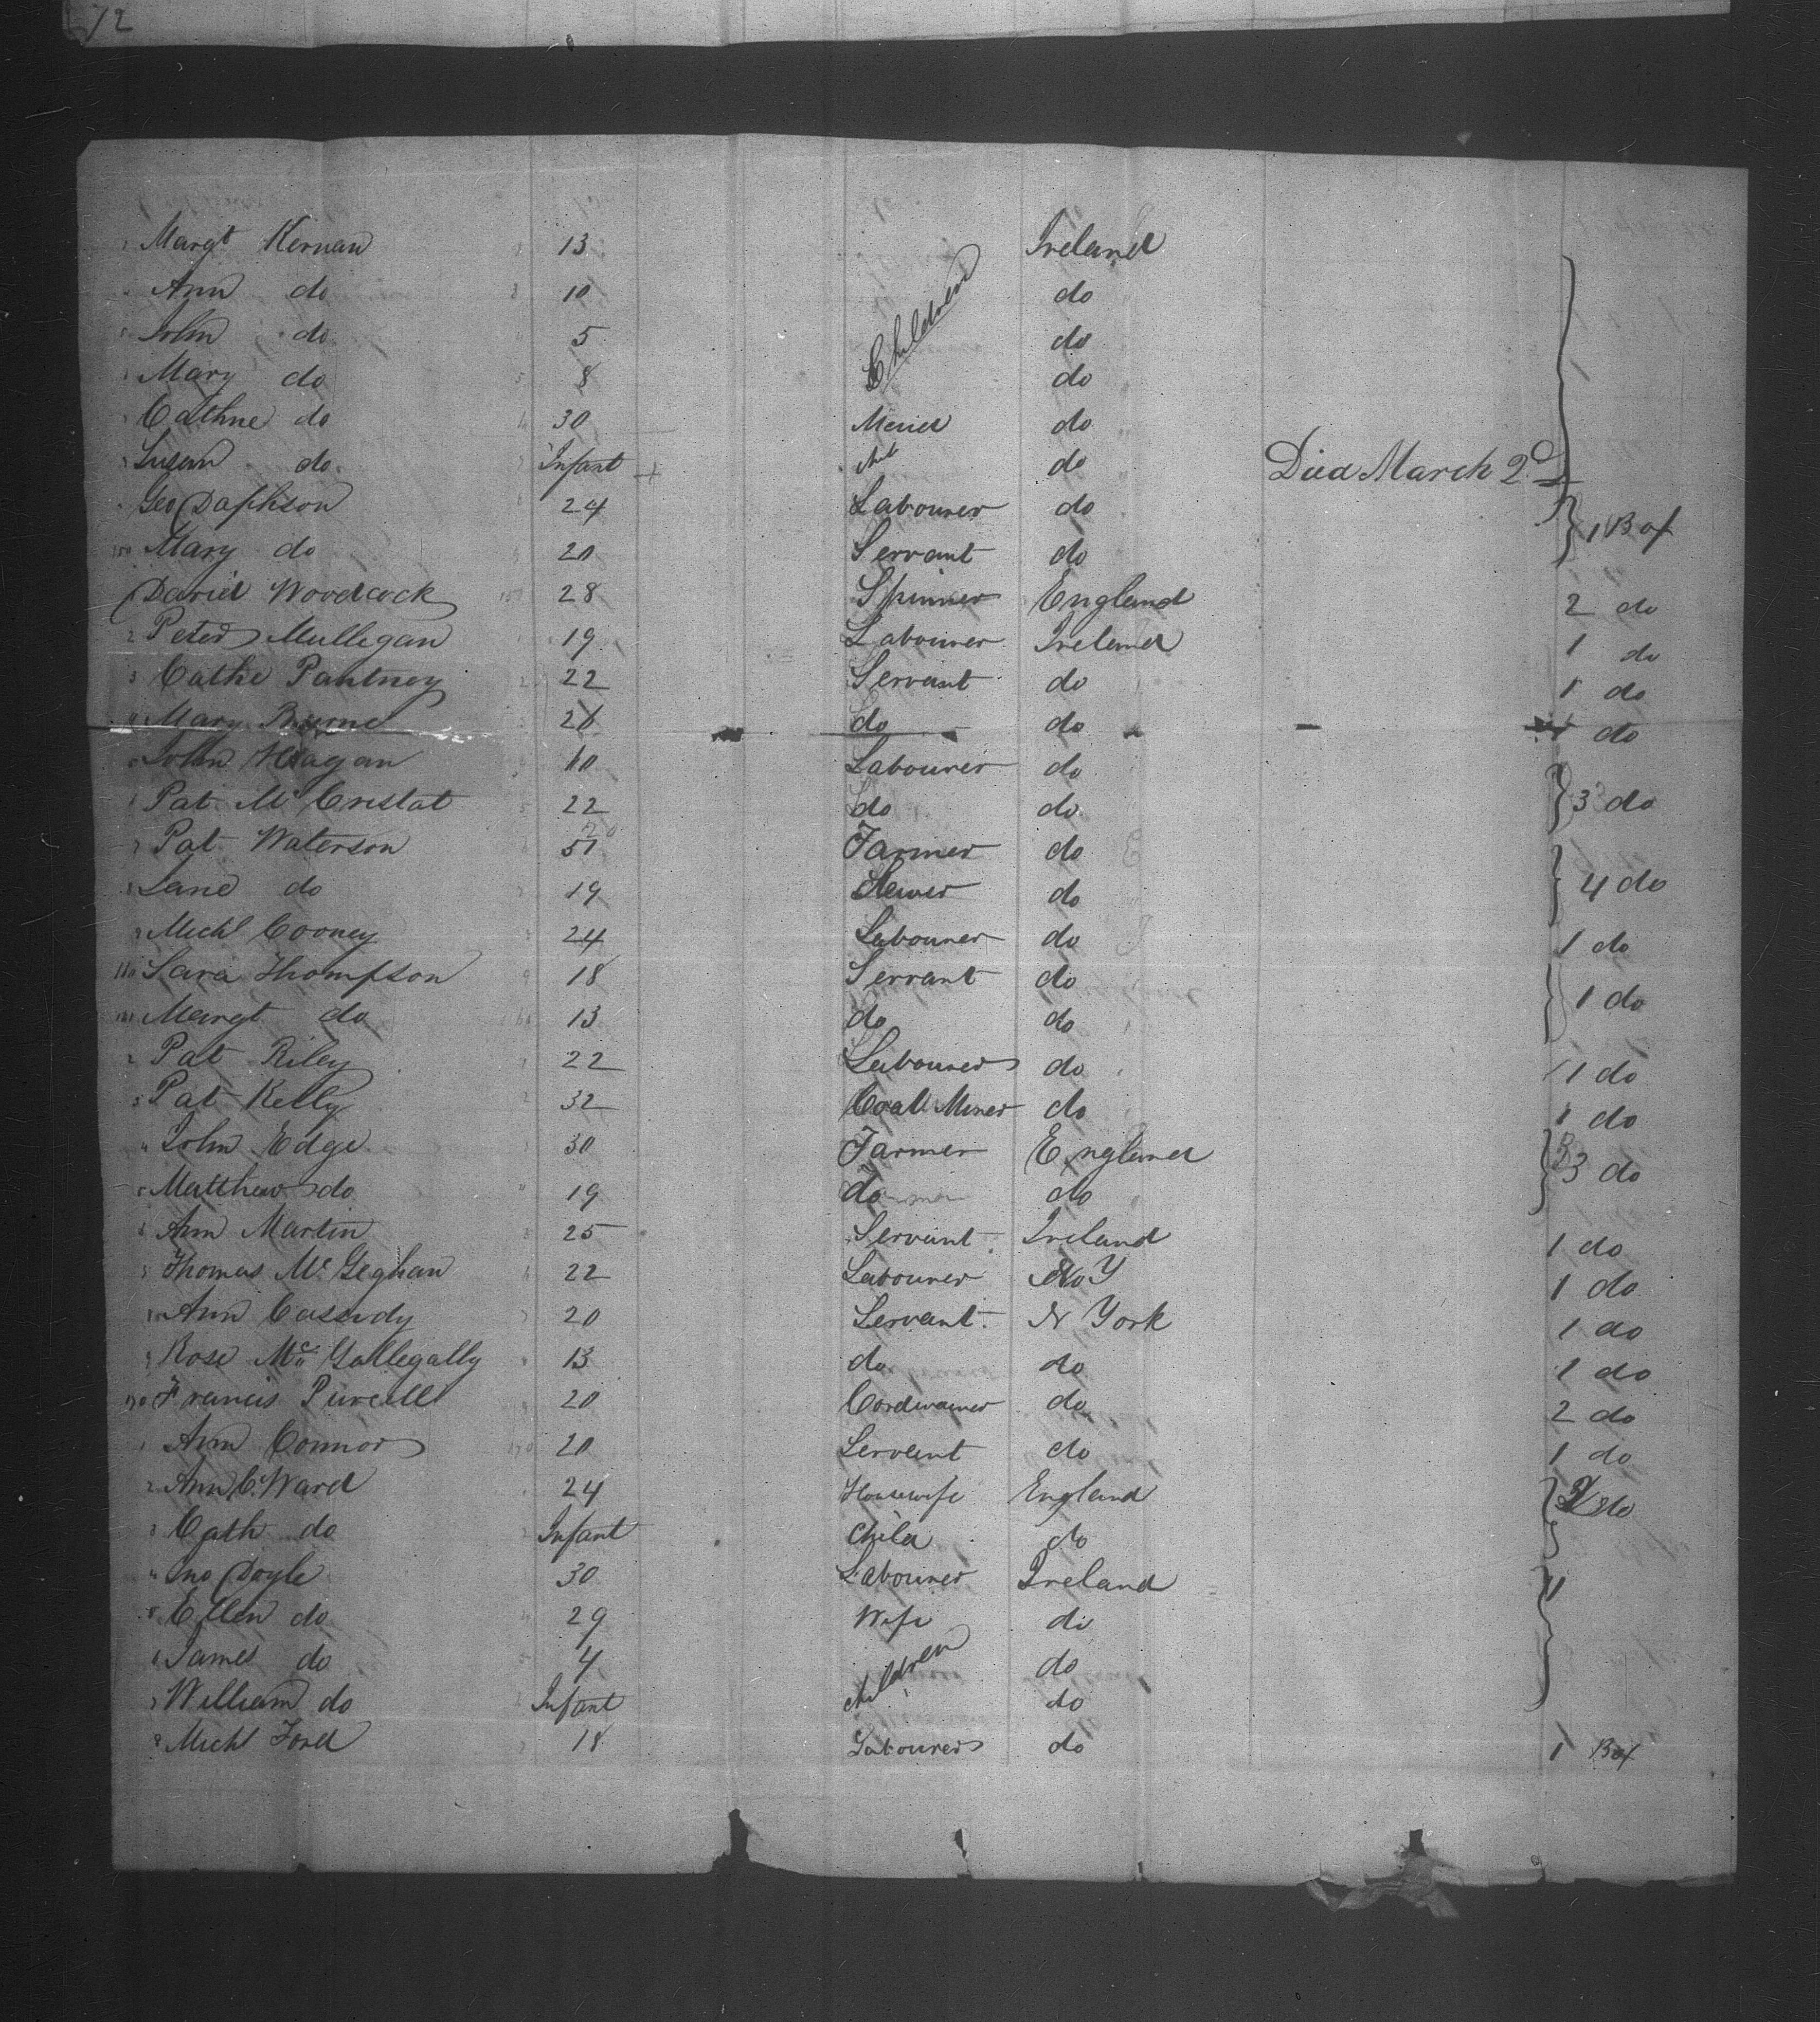 72
Margt Kernan 13 Ireland
Ann do 10 Children do
John do 5 do
Mary do 8 do
Cathne do 30 Maid do
Susan do Infant do Died March 2d
Geo Daphson 24 Labourer do 1 Box
Mary do 20 Servant do
David Woodcock 28 Spinner England 2 do
2 Peter Mulligan 19 Labourer Ireland 1 do
3 Cathe Pantney 22 Servant do 1 do
Mary Burne do do 1 do
John Hagan Labourer do
Pat Mc Cristat 22 do do 3 do
Pat Waterson Farmer do
Jane do 19 do 4 do
Michl Cooney 24 Labourer do 1 do
Sara Thompson 18 Servant do
Margt do 13 do do 1 do
2 Pat Riley 22 Labourer do 1 do
3 Pat Kelly 32 Coal Miner do 1 do
John Edge 30 Farmer England
Matthew do 19 do do 3 do
Ann Martin 25 Servant Ireland 1 do
Thomas Mc Geghan 22 Labourer N Y 1 do
Ann Cassidy 20 Servant N York 1 do
Rose Mc Gallegally 13 do do 1 do
Francis Purcell 20 Cordwainer do 2 do
Ann Connor 20 Servant do 1 do
2 Ann C. Ward 24 Housewife England do
3 Cath do Infant Child do
Jno Doyle 30 Labourer Ireland
Ellen do 29 Wife do
James do 4 children do
William do Infant do
8 Michl Ford 18 Labourer do 1 Box